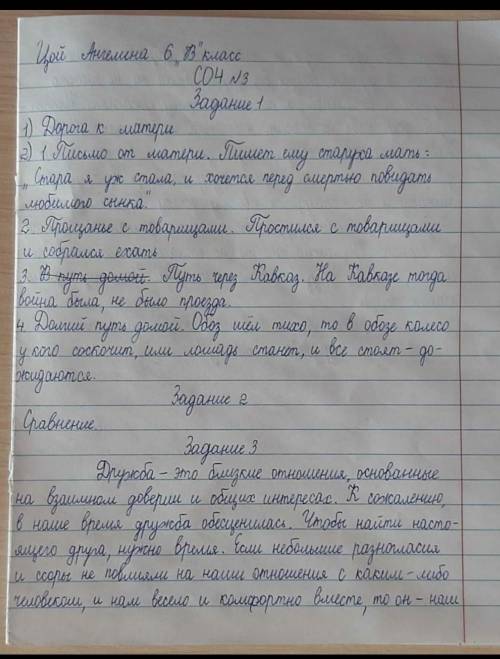 Цой Ангелина 6 „В" класс
СОЧ №3
Задание 1
1) Дорога к матери
2) 1. Письмо от матери. Пишет ему старуха мать:
„Стара я уж стала, и хочется перед смертью повидать
любимого сынка".
2. Прощанье с товарищами. Простился с товарищами
и собрался ехать
3. В путь домой. Путь через Кавказ. На Кавказе тогда
война была, не было проезда.
4. Долгий путь домой. Обоз шёл тихо, то в обозе колесо
у кого соскочит, или лошадь станет, и все стоят - до-
жидаются.
Задание 2
Сравнение.
Задание 3
Дружба - это близкие отношения, основанные
на взаимном доверии и общих интересах. К сожалению,
в наше время дружба обесценилась. Чтобы найти насто-
ящего друга, нужно время. Если небольшие разногласия
и ссоры не повлияли на наши отношения с каким-либо
человеком, и нам весело и комфортно вместе, то он - наш